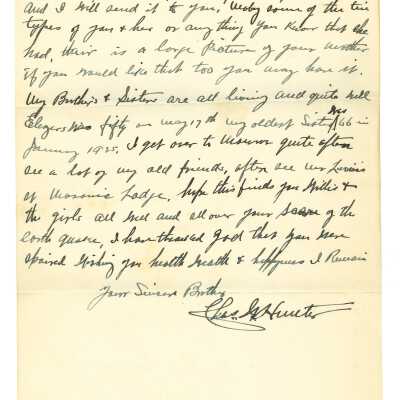 and I will send it to you, some of the tin
types of you & her or anything you know that she
had, their is a large Picture of your mother
if you would like that too you may have it.
My Brothers & Sisters are all living and quite well
was fifty on may 17th my oldest Sister was 66 in
January 1925. I get over to quite often
see a lot of my old friends, often see mr
at Masonic Lodge, hope this finds you & 
the girls all well and all over your Scare of the
earth quake, I have thanked God that you were
spaired Wishing you health Wealth & happyness I Remain
Your Sincere Brother
Chas. Hunter